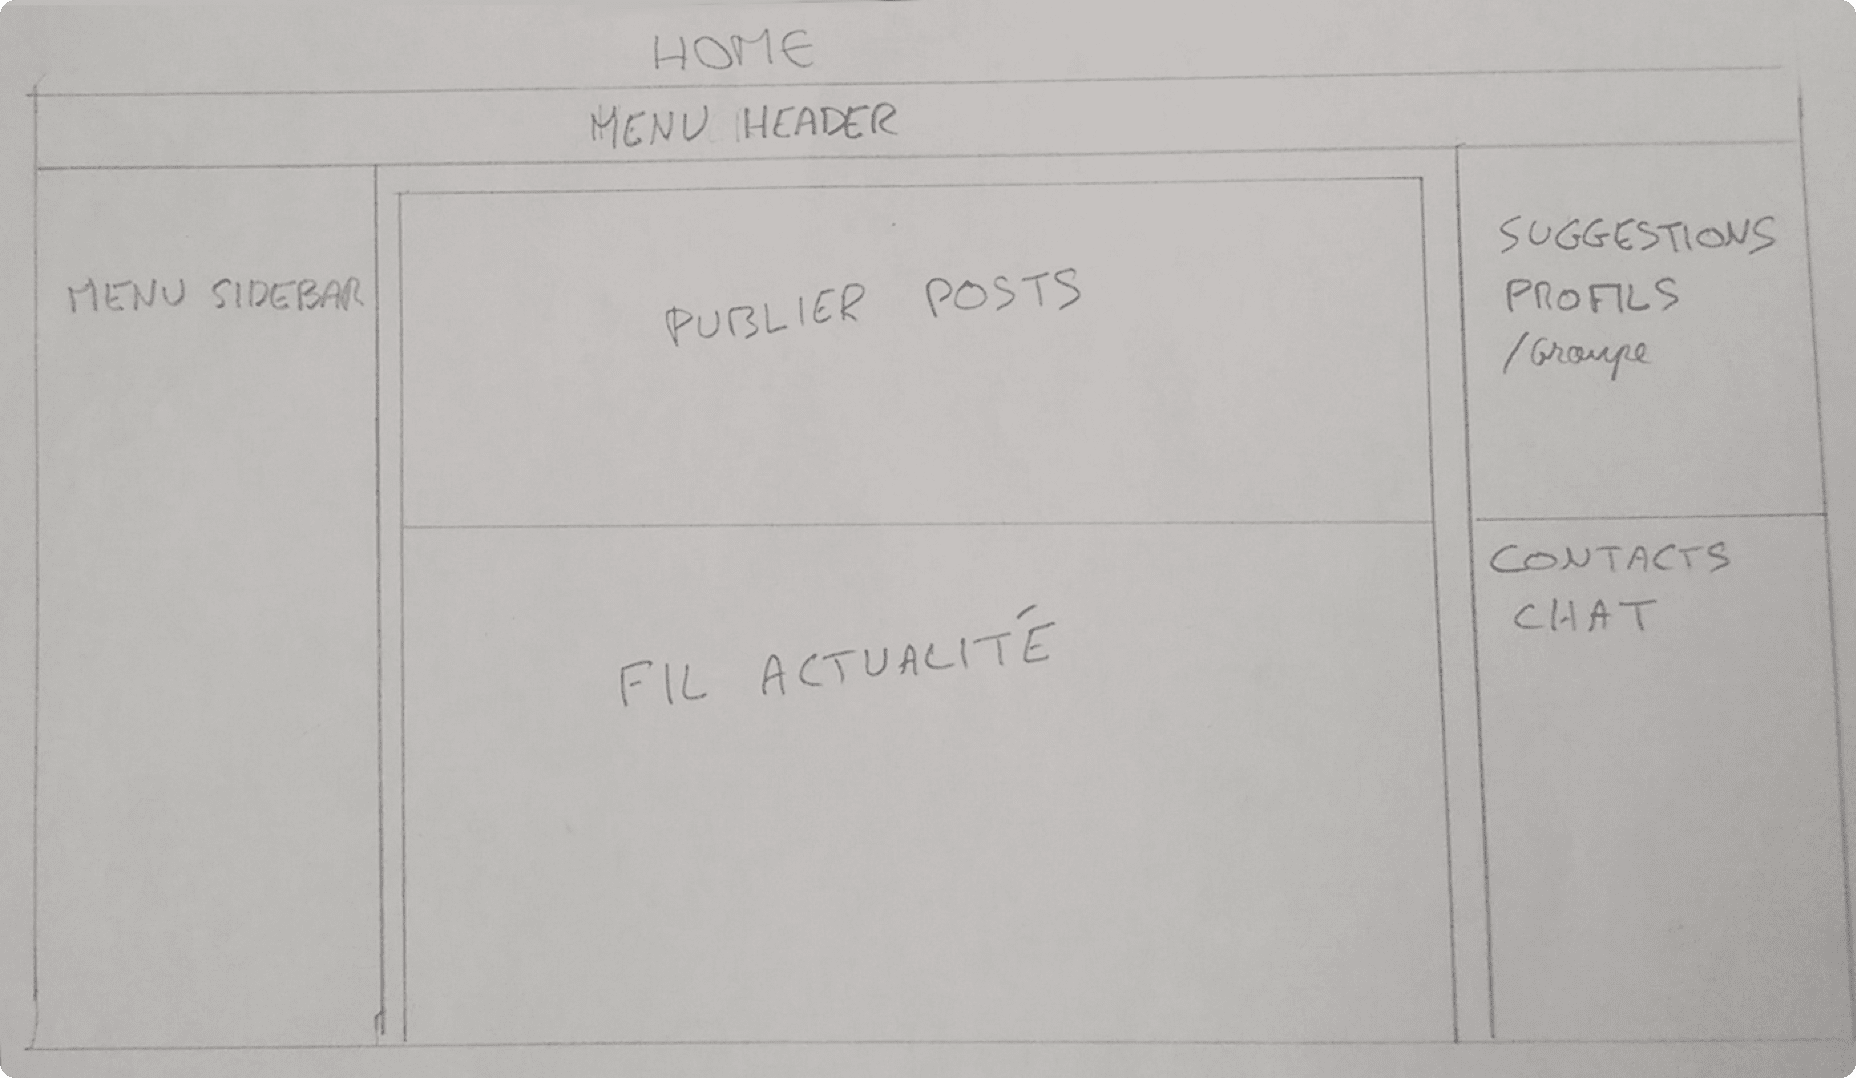 HOME
MENU HEADER
MENU SIDEBAR
PUBLIER POSTS
FIL ACTUALITÉ
SUGGESTIONS
PROFILS
/Groupe
CONTACTS
CHAT